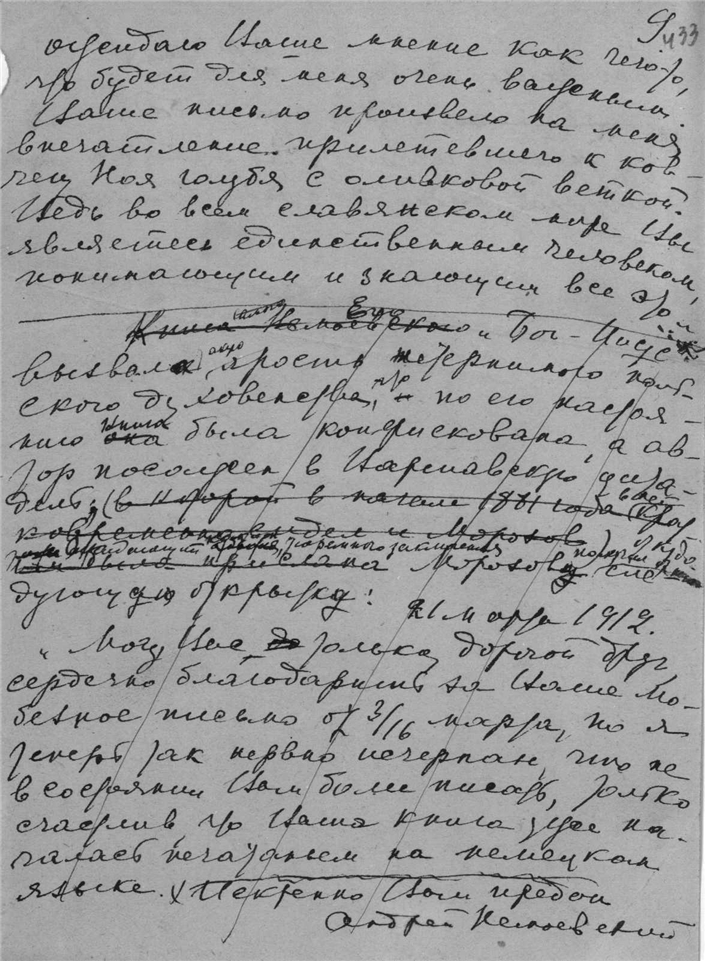 9
433
ожидаю Ваше мнение как чего-то,
что будет для меня очень важным.
Ваше письмо произвело на меня
впечатление прилетевшего к ков-
чегу Ноя голубя с оливковой веткой.
Ведь во всем славянском мире Вы
являетесь единственным человеком,
понимающим и знающим все это."
Книга Немоевского и Бог-Иисус
вызвала такую ярость нетерпимого поль-
ского духовенства, что по его настоя-
нию книга она была конфискована, а ав-
тор посажен в Варшавскую цита-
дель, (в которой в начале 1881 года
ковременно сидел и Морозов)
была прислана Морозову сле-
дующую открытку:
21 марта 1912.
"Могу Вас только, дорогой друг,
сердечно благодарить за Ваше лю-
безное письмо от 3/16 марта, но я
теперь так нервно исчерпан, что не
в состоянии Вам более писать, только
счастлив что Ваша книга уже на-
чалась печатаньем на немецком
языке. Искренно Вам предан
Андрей Немоевский